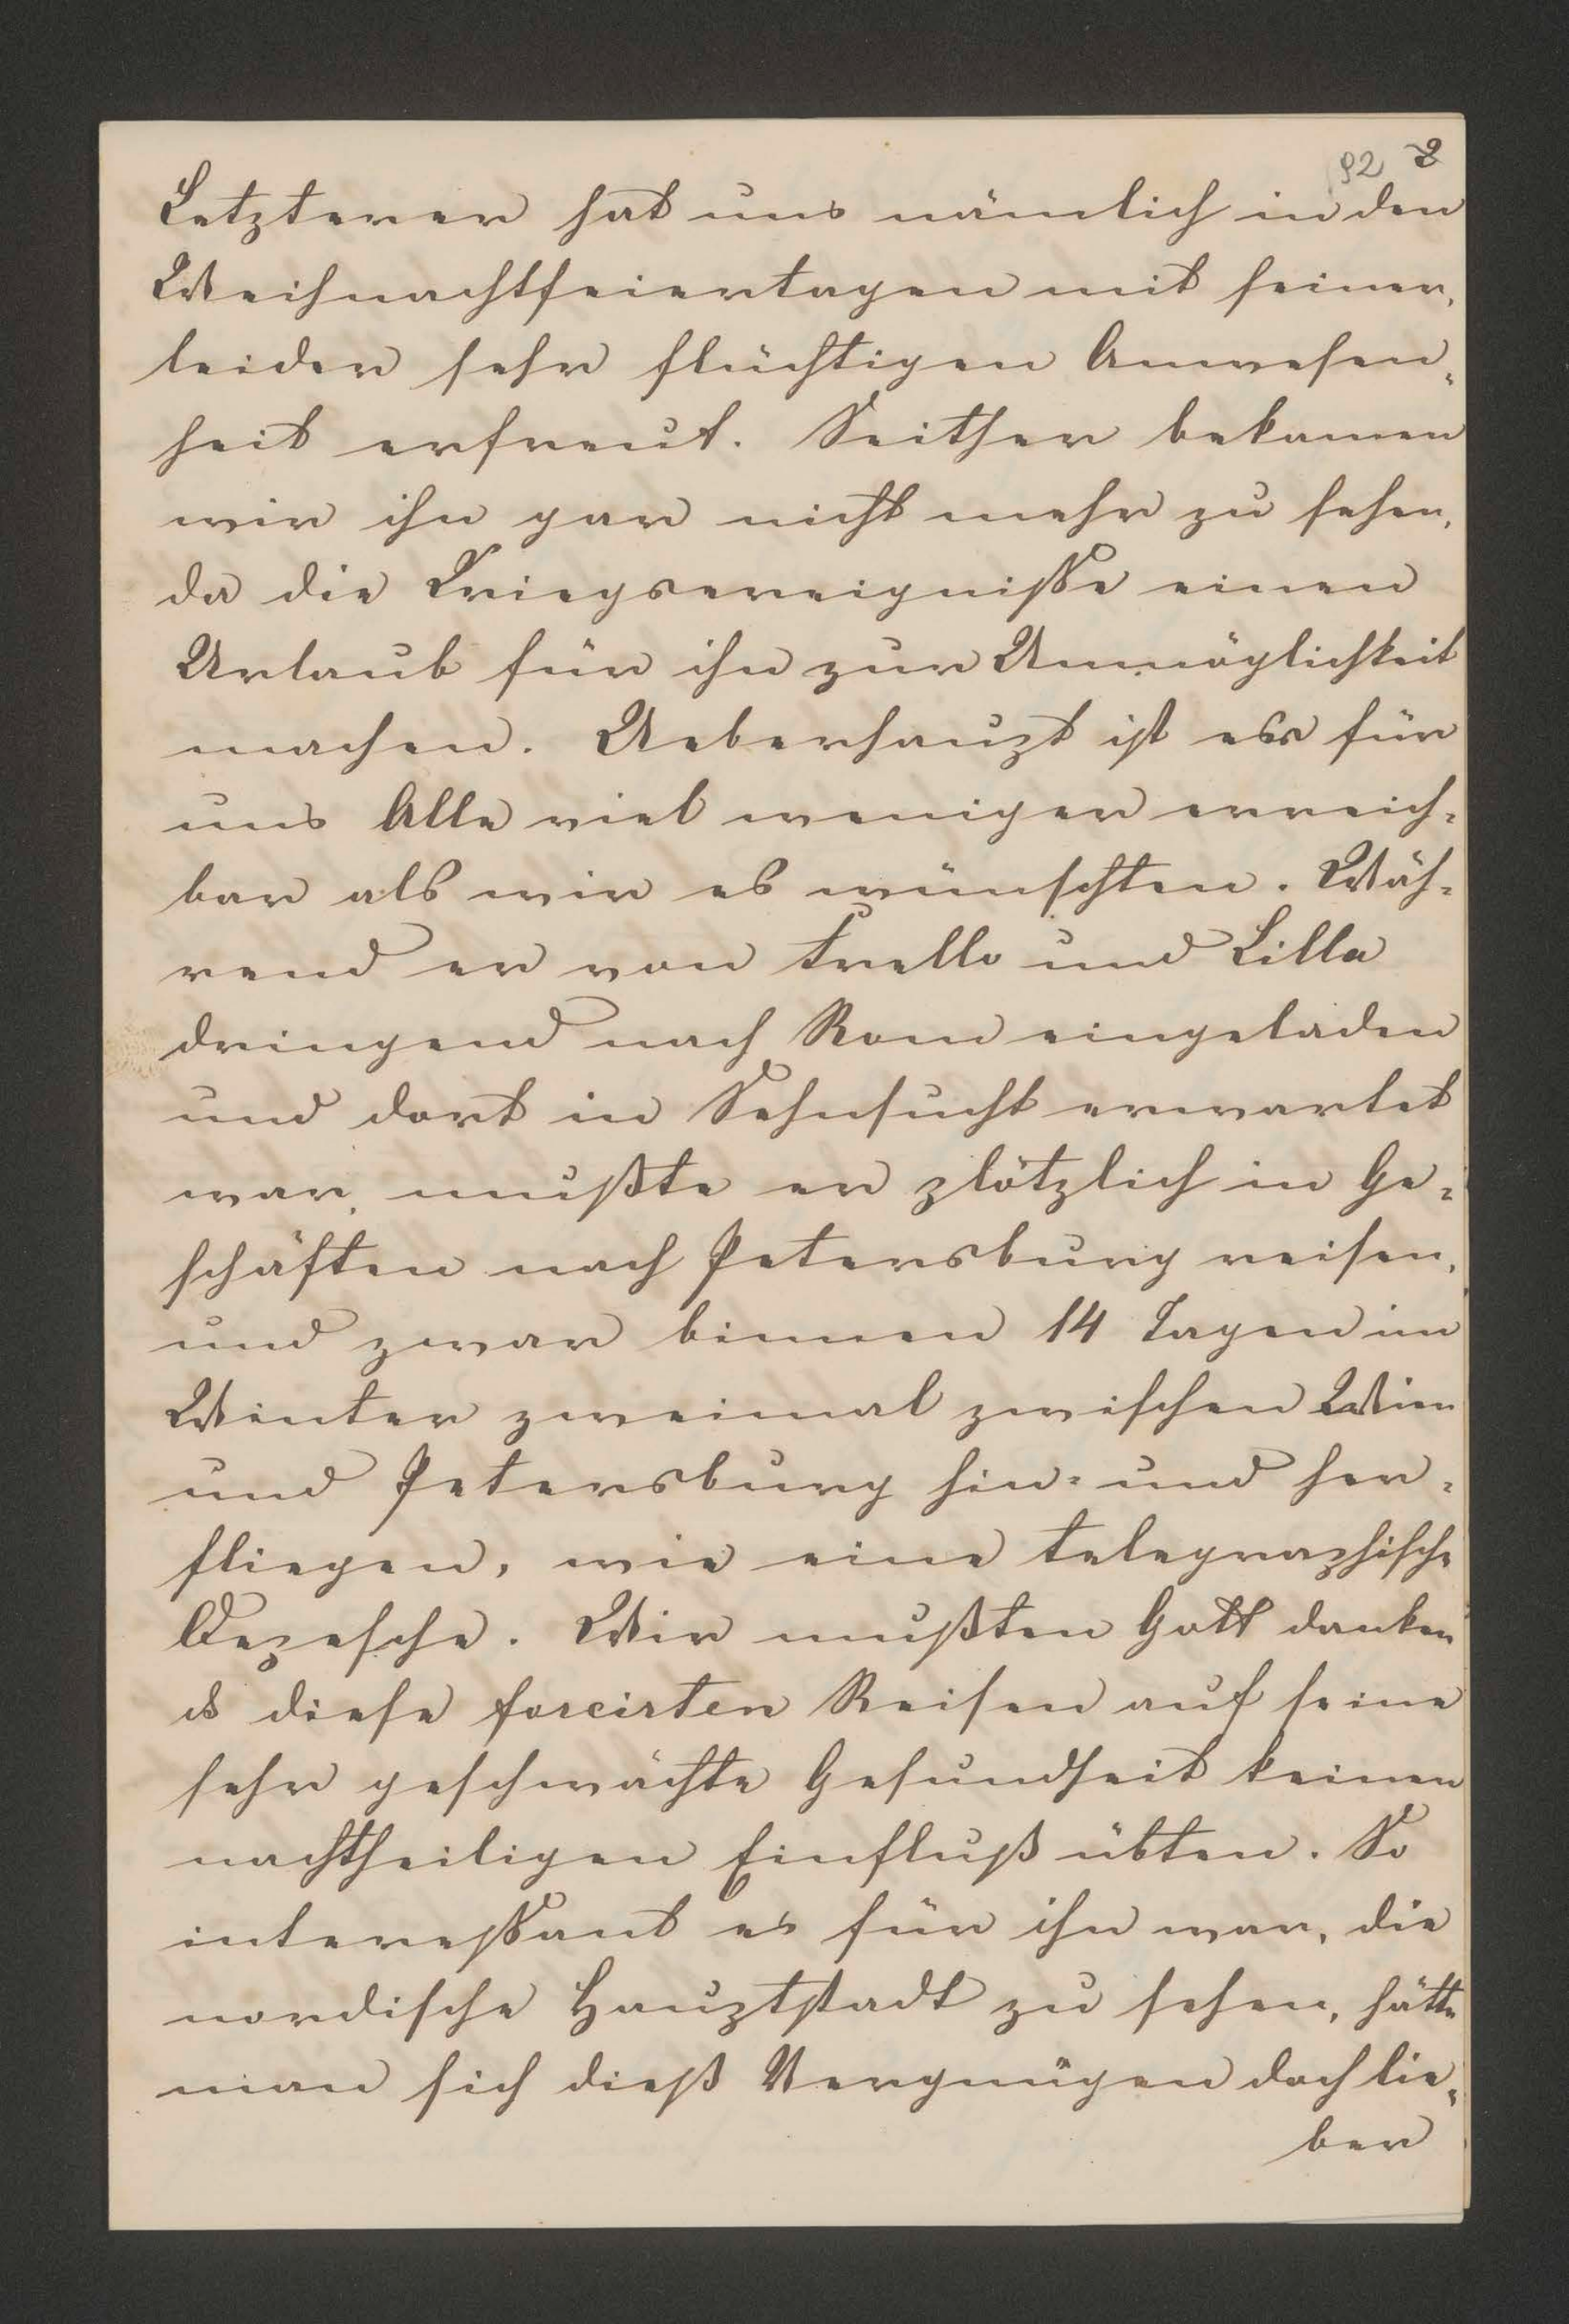 92 8
Letzterer hat uns nämlich in den
Weihnachtfeiertagen mit seiner,
leider sehr flüchtigen Anwesen-
heit erfreut. Seither bekamen
wir ihn gar nicht mehr zu sehen,
da die Kriegsereignisse einen
Urlaub für ihn zur Unmöglichkeit
machen. Ueberhaupt ist er für
uns Alle viel weniger erreich-
bar als wir es wünschten. Wäh-
rend er von Trello und Lilla
dringend nach Rom eingeladen
und dort in Sehnsucht erwartet
war, mußte er plötzlich in Ge-
schäften nach Petersburg reisen,
und zwar binnen 14 Tagen im
Winter zweimal zwischen Wien
und Petersburg hin- und her-
fliegen, wie eine telegraphische
Depesche. Wir mußten Gott danken
diese forcirten Reisen auf seine
sehr geschwächte Gesundheit keinen
nachtheiligen Einfluß übten. So
interessant es für ihn war, die
nordische Hauptstadt zu sehen, hätte
man sich dieß Vergnügen doch lie-
ber